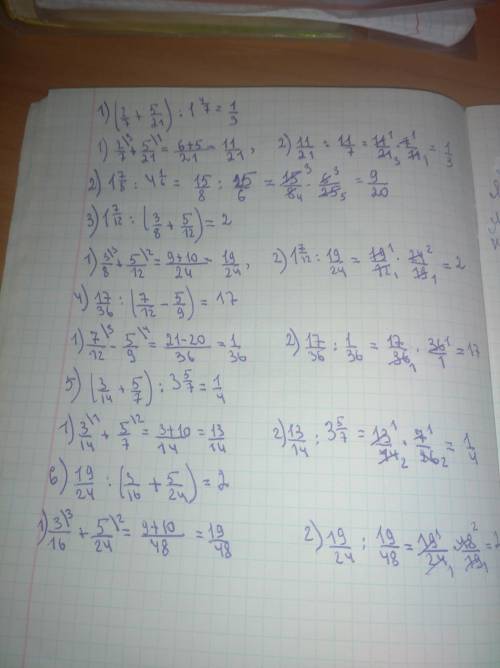 1) (2/7 + 5/21) : 1 4/7 = 1/3
1) 2/7\3 + 5/21\1 = 6+5/21 = 11/21, 2) 11/21 : 11/7 = 11¹/21₃ · 7¹/11₁ = 1/3
2) 1 7/8 : 4 1/6 = 15/8 : 25/6 = 15³/8₄ · 6³/25₅ = 9/20
3) 1 7/12 : (3/8 + 5/12) = 2
1) 3/8\3 + 5/12\2 = 9+10/24 = 19/24, 2) 1 7/12 : 19/24 = 19¹/12₁ · 24²/19₁ = 2
4) 17/36 : (7/12 - 5/9) = 17
1) 7/12\3 - 5/9\4 = 21-20/36 = 1/36 2) 17/36 : 1/36 = 17/36₁ · 36¹/1 = 17
5) (3/14 + 5/7) : 3 5/7 = 1/4
1) 3/14\1 + 5/7\2 = 3+10/14 = 13/14 2) 13/14 : 3 5/7 = 13¹/14₂ · 7¹/26₂ = 1/4
6) 19/24 : (3/16 + 5/24) = 2
1) 3/16\3 + 5/24\2 = 9+10/48 = 19/48 2) 19/24 : 19/48 = 19¹/24₁ · 48²/19₁ =